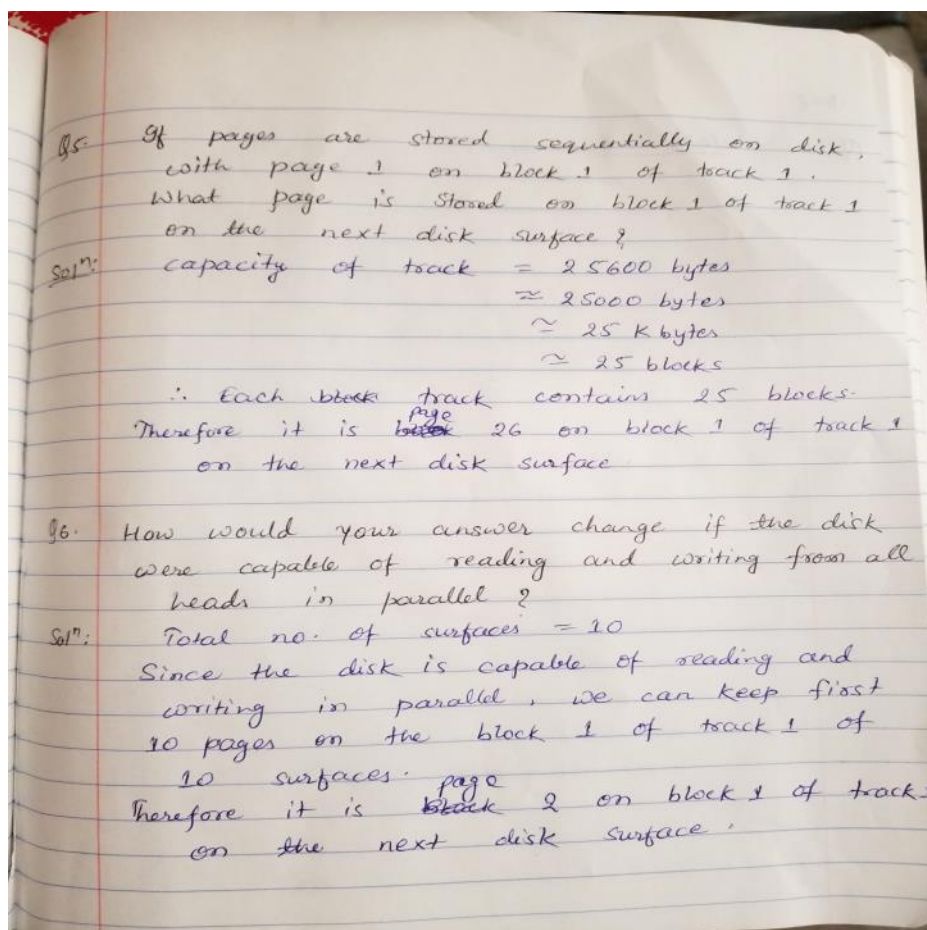 Q5. If pages are stored sequentially on disk,
with page 1 on block 1 of track 1.
What page is stored on block 1 of track 1
on the next disk surface?
Solⁿ: capacity of track = 25600 bytes
≈ 25000 bytes
≃ 25 K bytes
≃ 25 blocks
∴ Each track contains 25 blocks.
Therefore it is page 26 on block 1 of track 1
on the next disk surface
Q6. How would your answer change if the disk
were capable of reading and writing from all
heads in parallel?
Solⁿ: Total no. of surfaces = 10
Since the disk is capable of reading and
writing in parallel, we can keep first
10 pages on the block 1 of track 1 of
10 surfaces.
Therefore it is page 2 on block 1 of track
on the next disk surface.